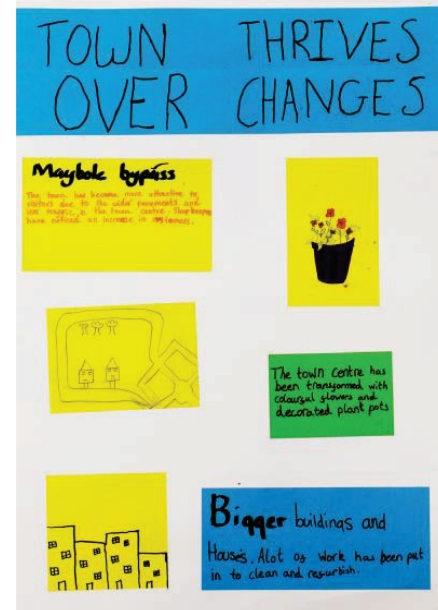 TOWN THRIVES
OVER CHANGES
Maybole bypass
The town has become more attractive to
visitors due to the wider pavements and
less traffic in the town centre. Shopkeepers
have noticed an increase in customers.
The town centre has
been transformed with
colourful flowers and
decorated plant pots
Bigger buildings and
Houses. Alot of work has been put
in to clean and refurbish.